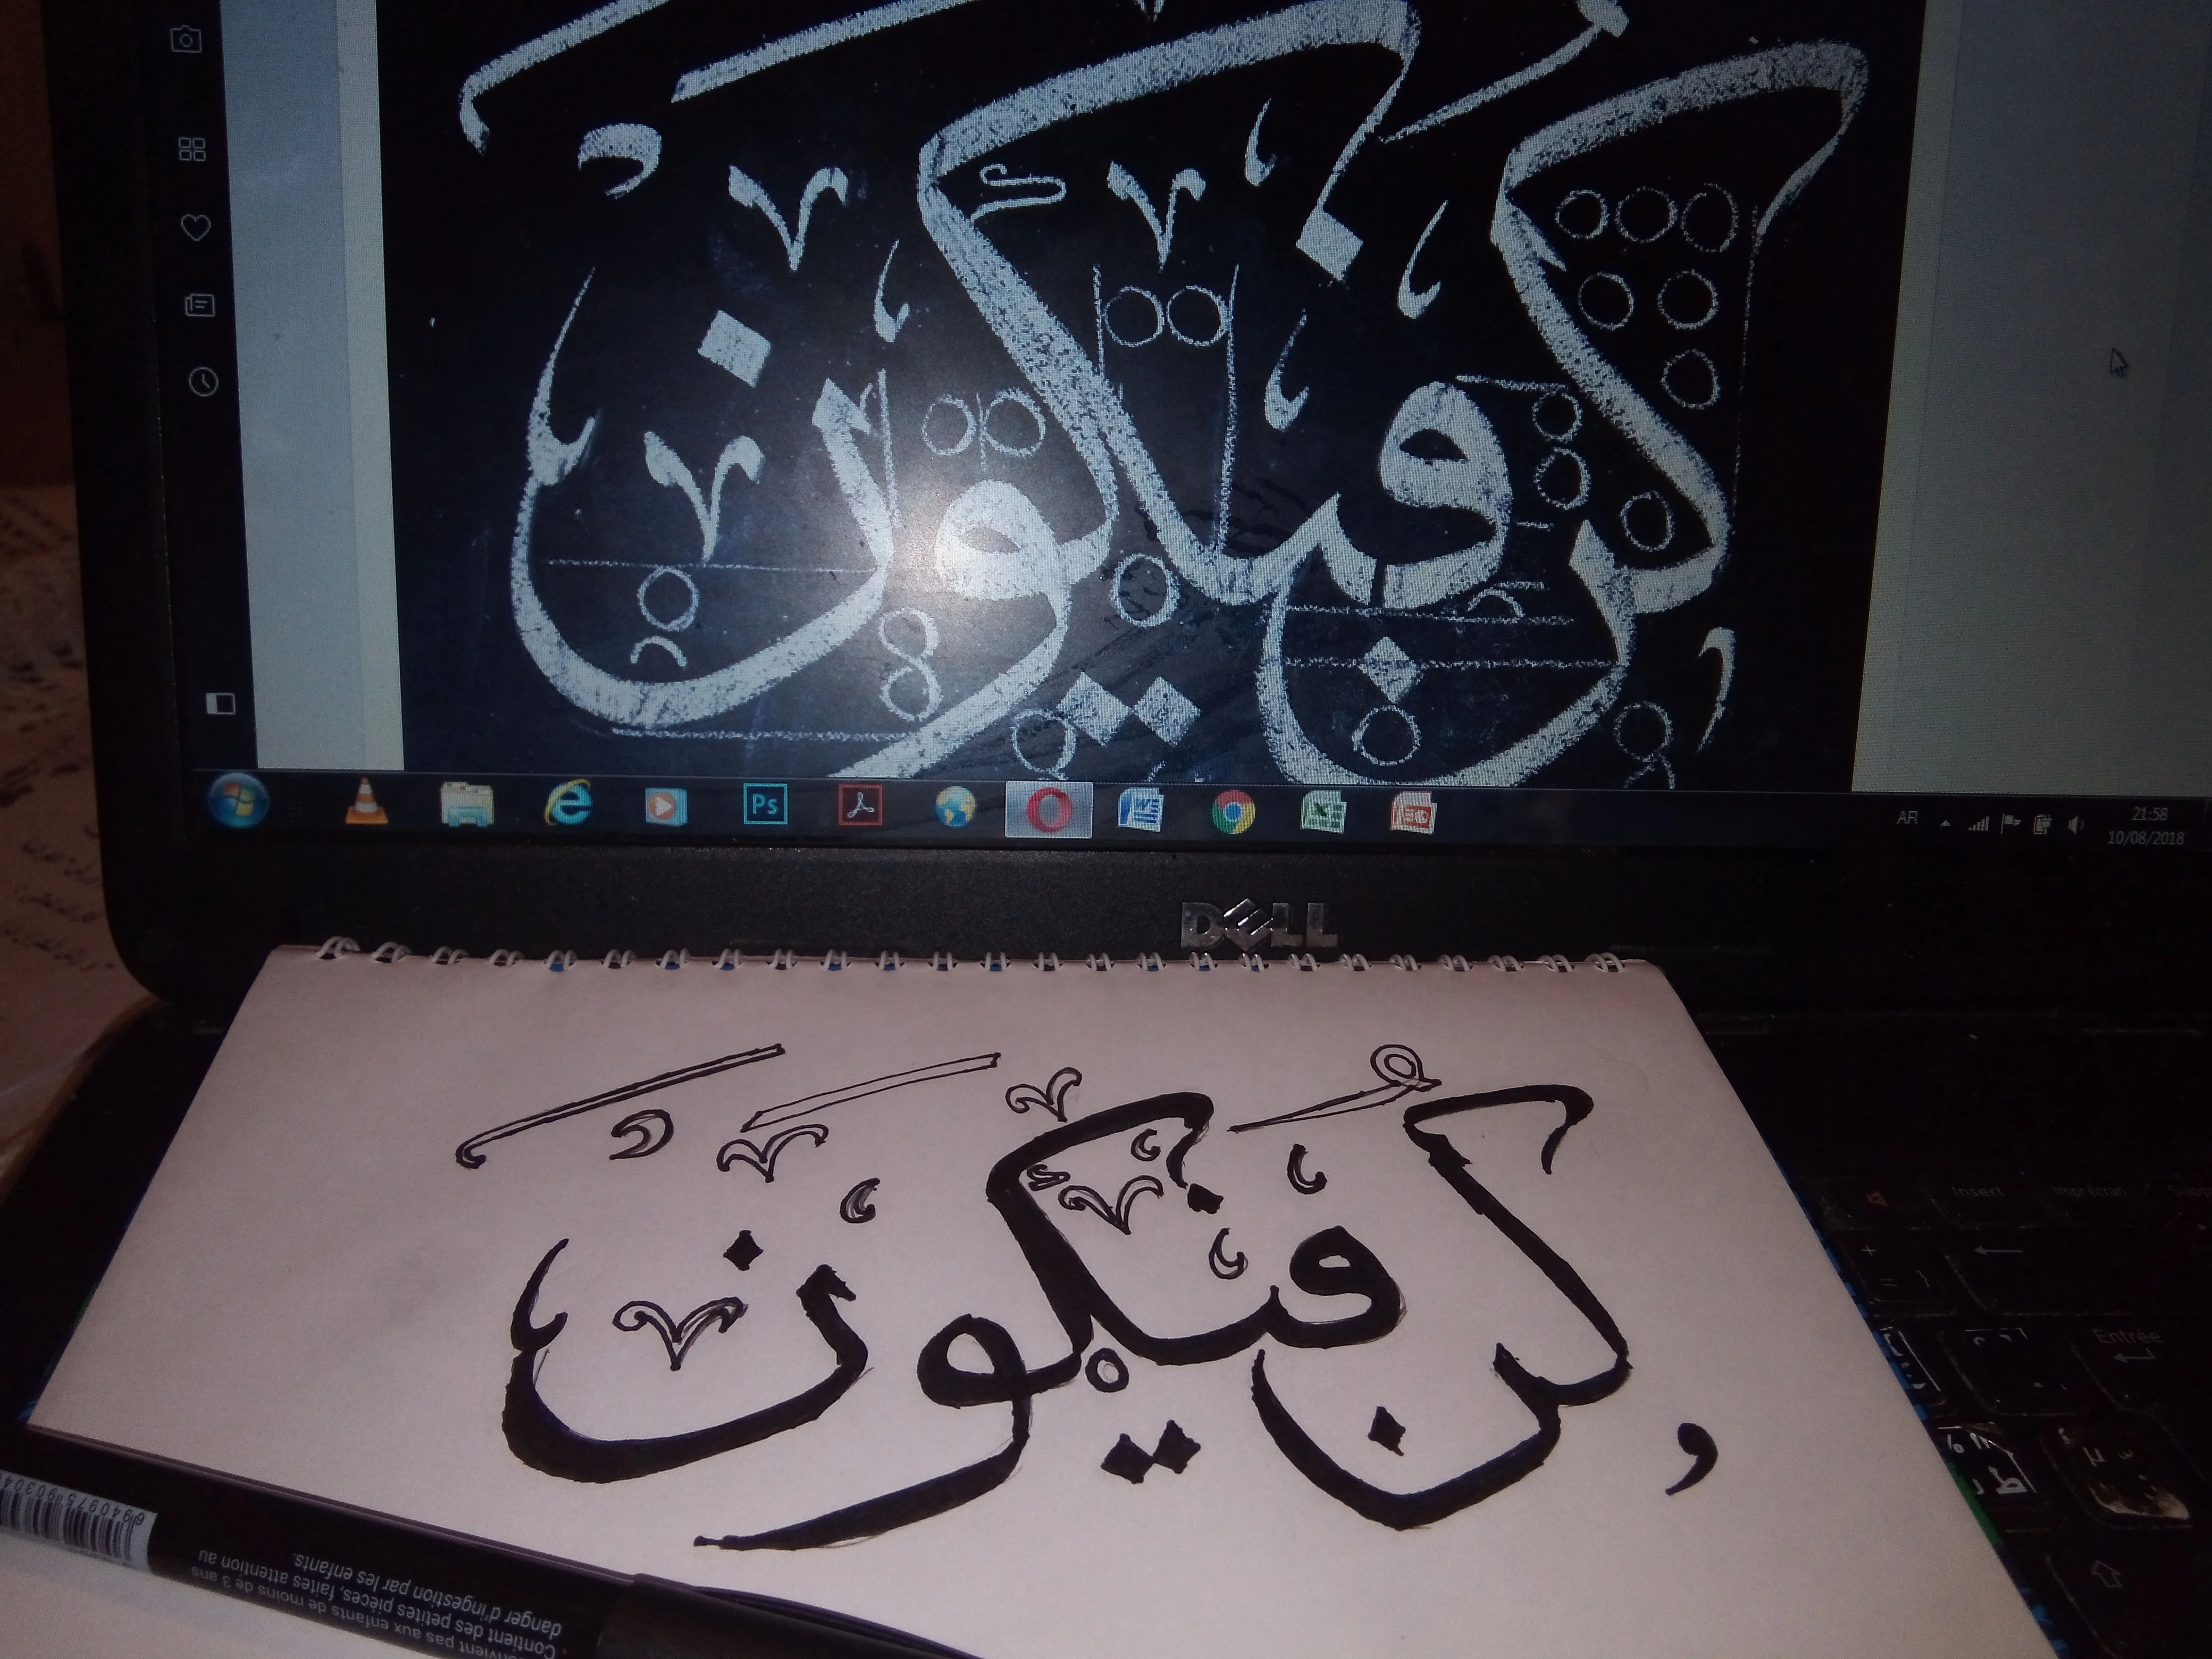 كن فيكون
Ps
W
X
AR
21:58
10/08/2018
DELL
كُن فَيَكُونُ
Insert
Imprécran
Entrée
ط
6940975903040
convient pas aux enfants de moins de 3 ans
Contient des petites pièces, faites attention au
danger d'ingestion par les enfants.